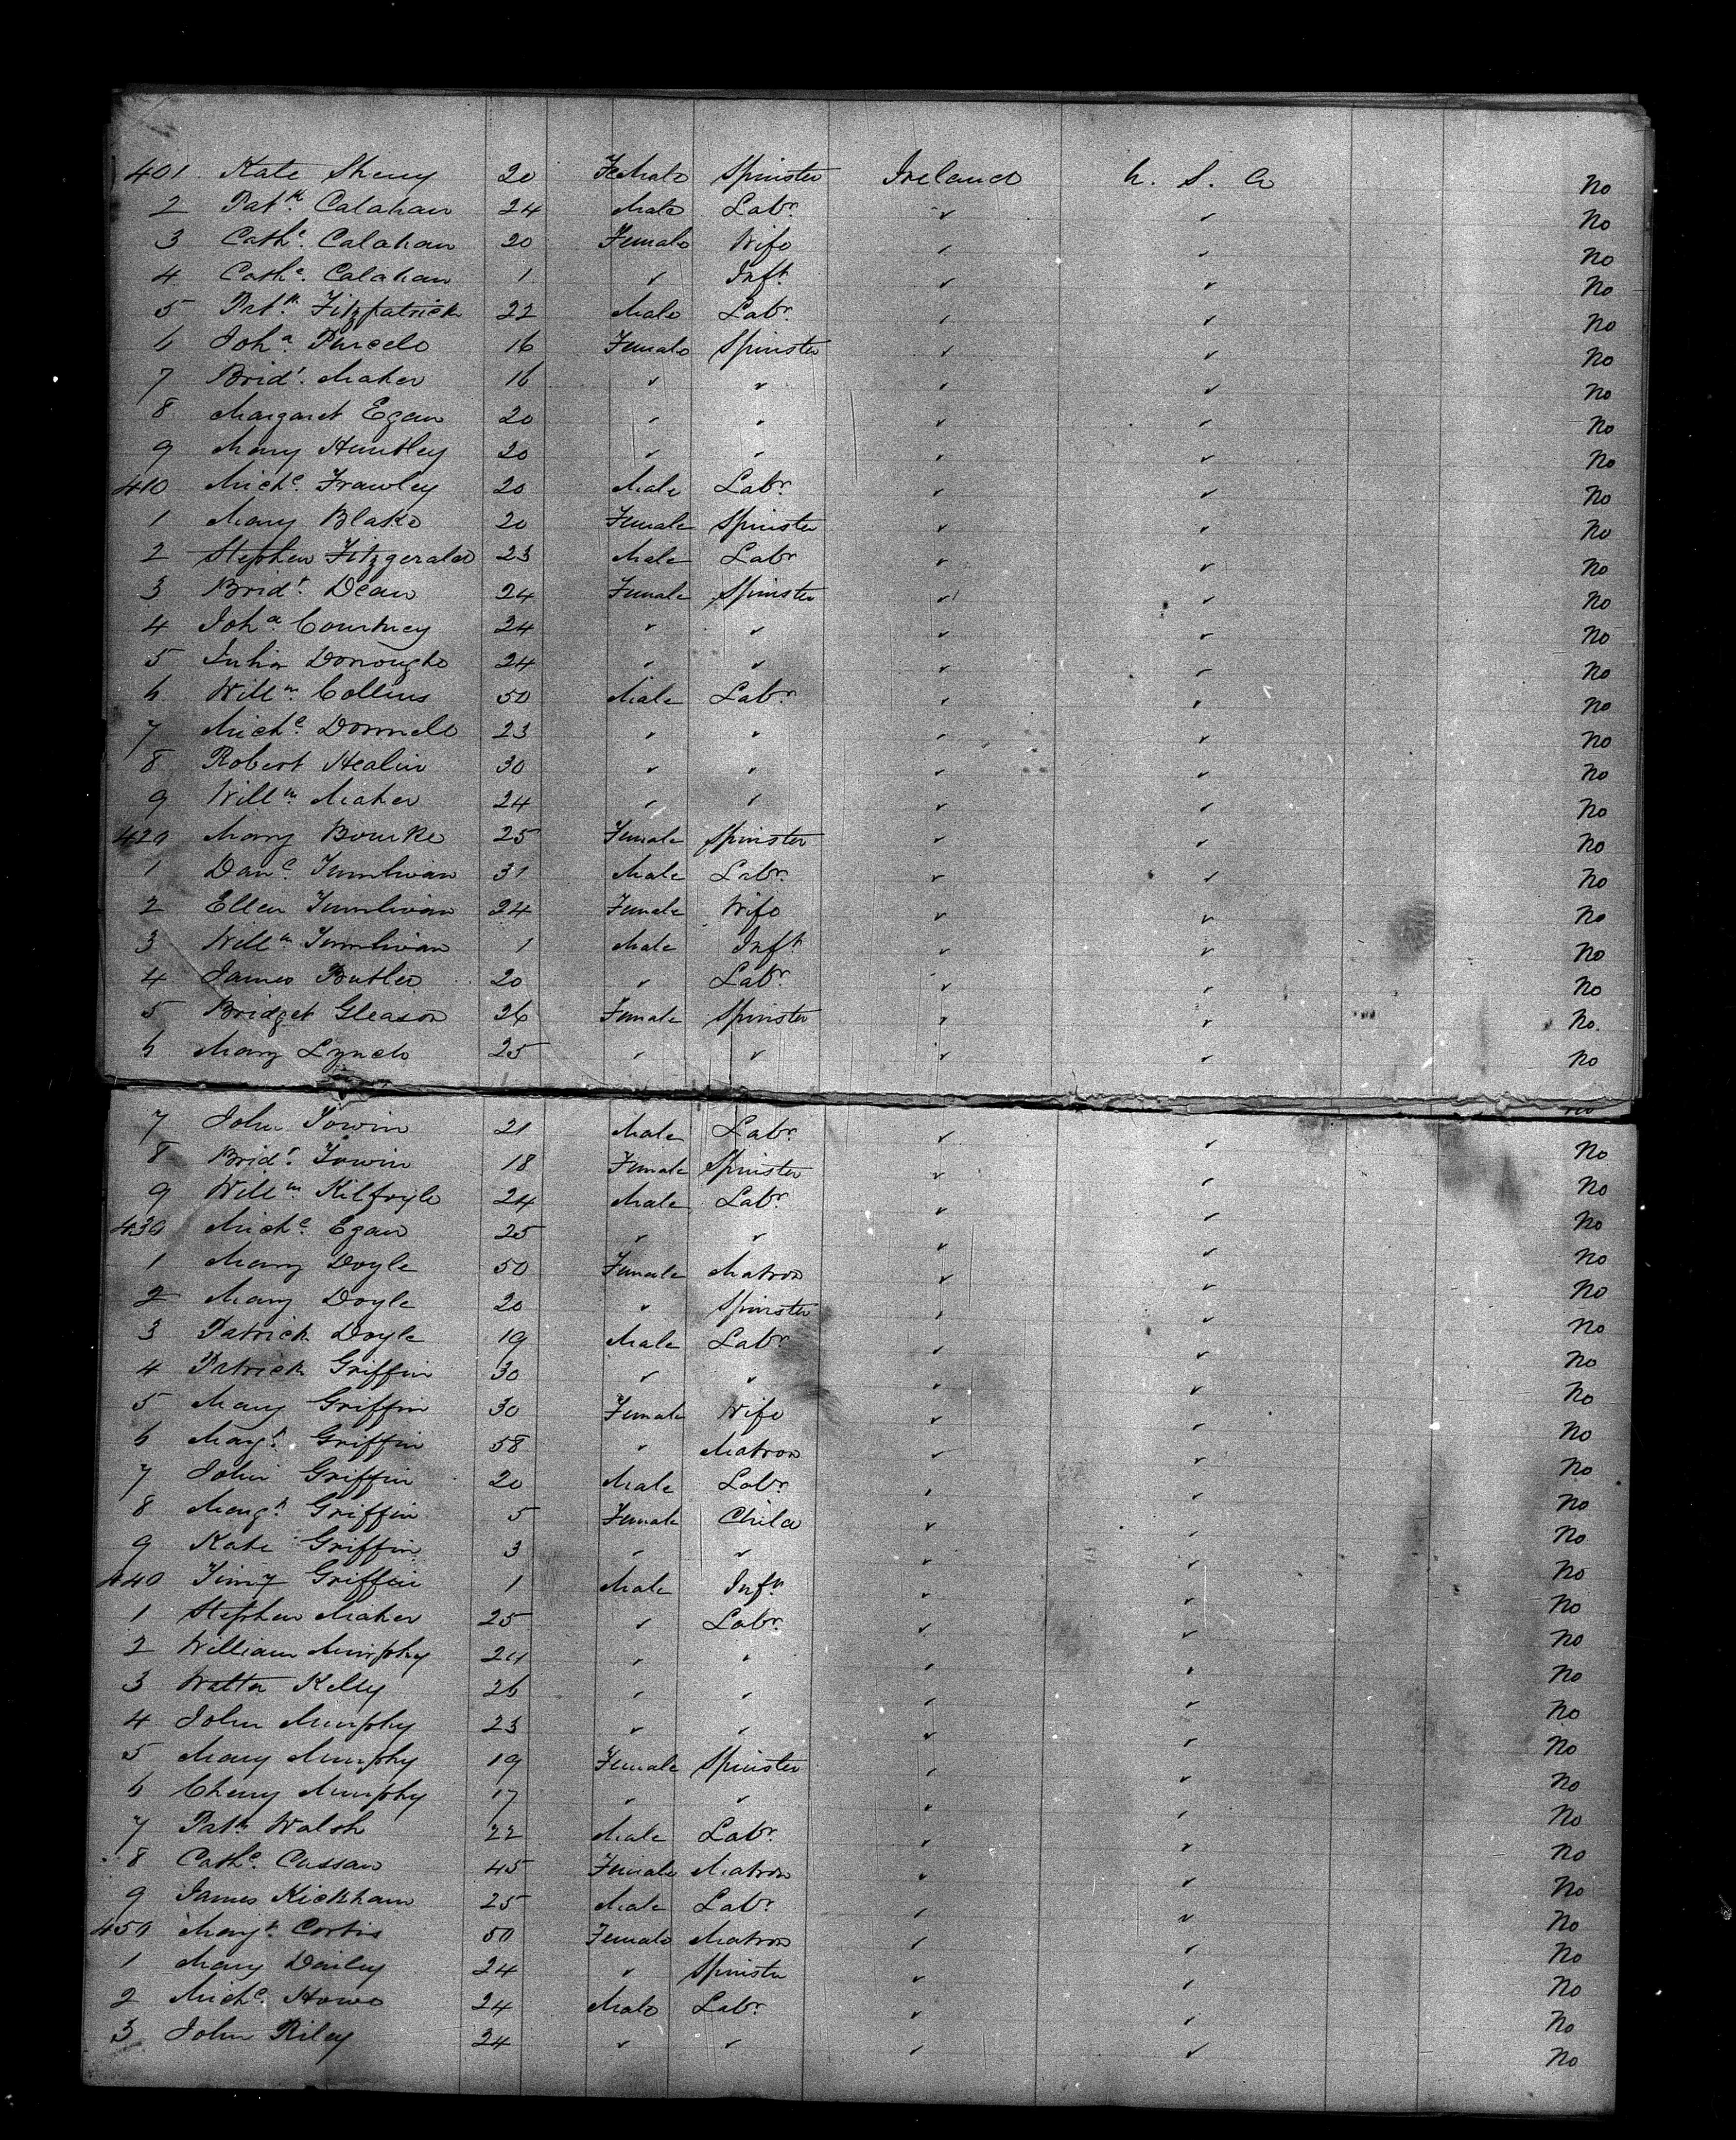 401 Kate Sheny 20 Female Spinster Ireland U. S. A No
2 Patk. Calahan 24 Male Labr. " " No
3 Cathe. Calahan 20 Female Wife " " No
4 Cathe. Calahan 1 " Inft. " " No
5 Patk. Fitzpatrick 22 Male Labr. " " No
6 Joha. Purcele 16 Female Spinster " " No
7 Bridt. Maher 16 " " " " No
8 Margaret Egan 20 " " " " No
9 Mary Huntley 20 " " " " No
410 Michl. Frawley 20 Male Labr. " " No
1 Mary Blake 20 Female Spinster " " No
2 Stephen Fitzgerald 23 Male Labr " " No
3 Bridt. Dean 24 Female Spinster " " No
4 Joha Courtney 24 " " " " No
5 Julia Donoughe 24 " " " " No
6 Willm. Collins 50 Male Labr. " " No
7 Michl. Donnell 23 " " " " No
8 Robert Healin 30 " " " " No
9 Willm. Maher 24 " " " " No
420 Mary Bourke 25 Female Spinster " " No
1 Danl. 31 Male Labr. " " No
2 Ellen 24 Female Wife " " No
3 Willm 1 Male Inft " " No
4 James Butler 20 " Labr. " " No
5 Bridget Gleason 26 Female Spinster " " No.
6 Mary Lynch 25 " " " " No
No
7 John 21 Male Labr. " " No
8 Bridt. 18 Female Spinster " " No
9 Willm 24 Male Labr. " " No
430 Michl. Egan 25 " " " " No
1 Mary Doyle 50 Female Matron " " No
2 Mary Doyle 20 " Spinster " " No
3 Patrick Doyle 19 Male Labr. " " No
4 Patrick Griffin 30 " " " " No
5 Mary Griffin 30 Female Wife " " No
6 Margt. Griffin 58 " Matron " " No
7 John Griffin 20 Male Labr. " " No
8 Margt. Griffin 5 Female Child " " No
9 Kate Griffin 3 " " " " No
440 Timy Griffin 1 Male Inft. " " No
1 Stephen Maher 25 " Labr. " " No
2 William Murphy 24 " " " " No
3 Walter Kelly 26 " " " " No
4 John Murphy 23 " " " " No
5 Mary Murphy 19 Female Spinster " " No
6 Cherry Murphy 17 " " " " No
7 Patk Walsh 22 Male Labr. " " No
8 Cathe. Cussan 45 Female Matron " " No
9 James Kickham 25 Male Labr " " No
450 Margt. Cortis 50 Female Matron " " No
1 Mary Dailey 24 " Spinster " " No
2 Michl. Howe 24 Male Labr. " " No
3 John Riley 24 " " " " No